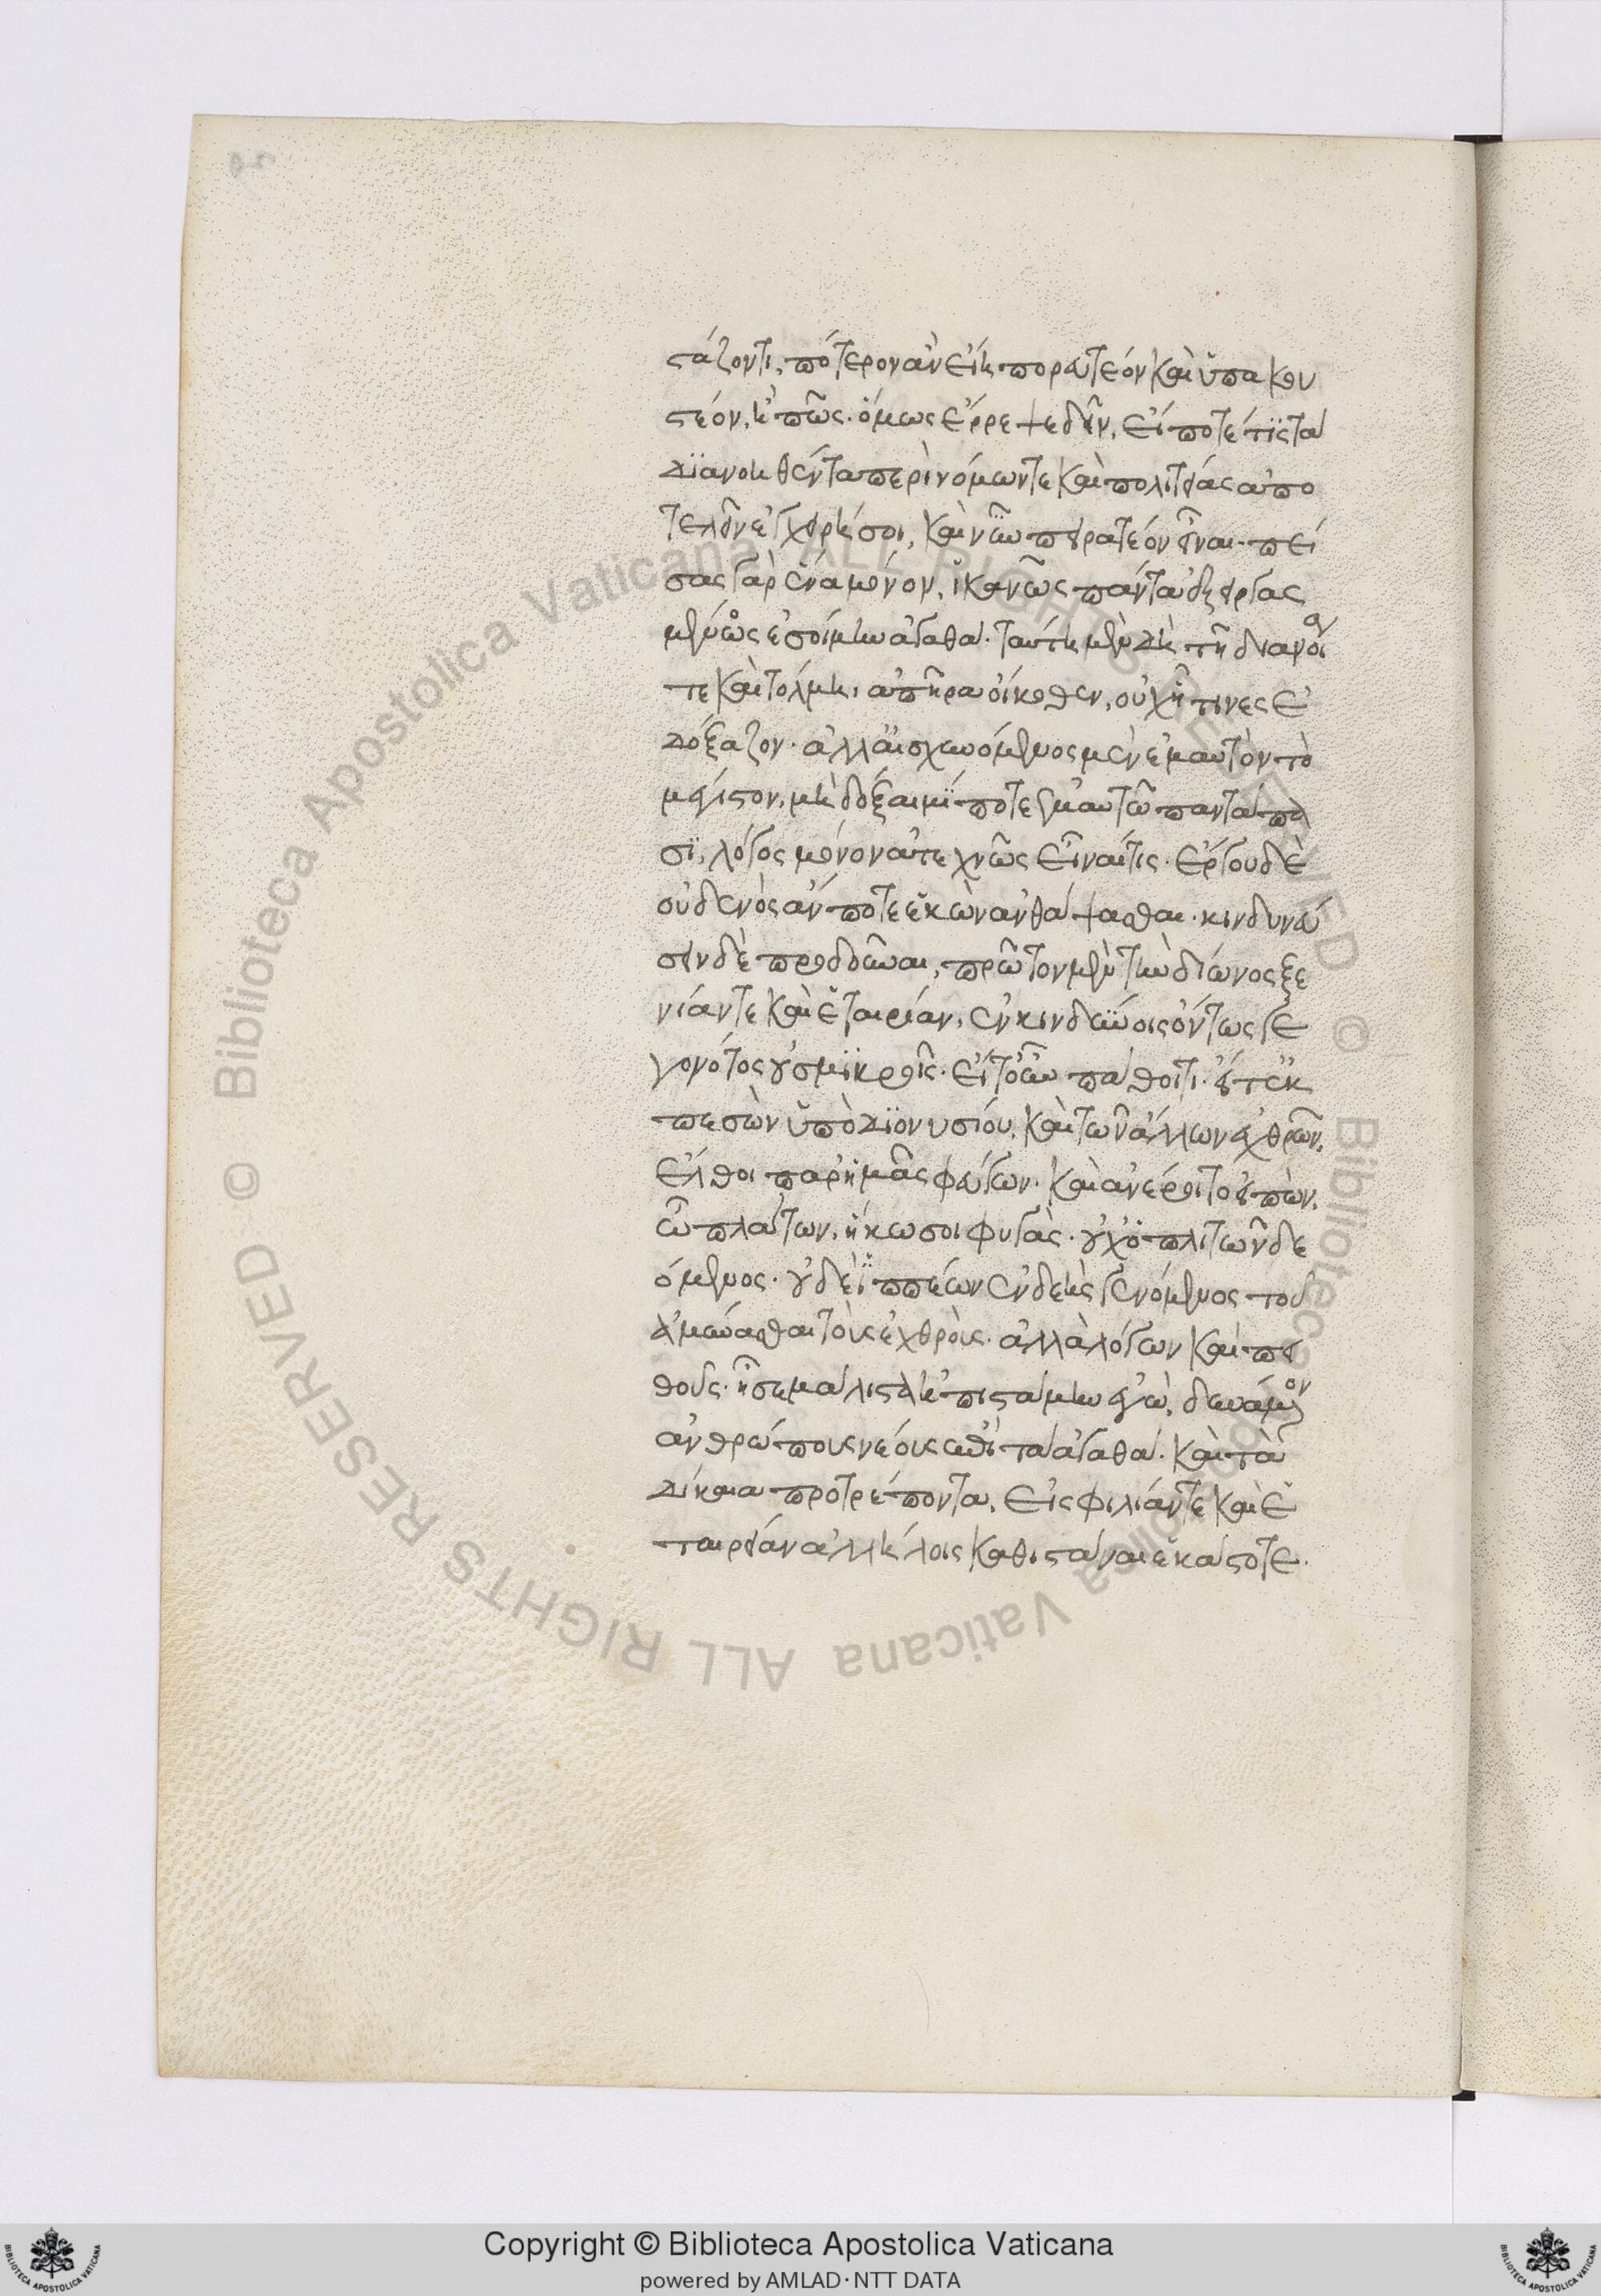 στάζοντι, πότερον ἂν εἴη πορευτέον καὶ ὑπακου
στέον, ἢ πῶς. ὅμως ἔρρεψε δεῖν, εἴ ποτέ τις τὰ
διανοηθέντα περὶ νόμων τε καὶ πολιτείας ἀπο
τελεῖν ἐγχειρήσοι, καὶ νῦν πειρατέον εἶναι. πεί
σας γὰρ ἕνα μόνον, ἱκανῶς πάντα ἐξειργας
μένως ἐσοίμην ἀγαθά. ταύτη μὲν δὴ τῆ διανοία
τε καὶ τόλμη, ἀπῆρα οἴκοθεν, οὐχ ᾗ τινες ἐ
δόξαζον. ἀλλ' αἰσχυνόμενος μὲν ἐμαυτὸν τὸ
μέγιστον, μὴ δόξαιμί ποτε ἐμαυτῶ παντάπα
σι, λόγος μόνον ἀτεχνῶς εἶναί τις. ἔργου δὲ
οὐδενὸς ἄν ποτε ἑκὼν ἀνθάψασθαι. κινδυνεύ
σειν δὲ προδοῦναι, πρῶτον μὲν τὴν δίωνος ξε
νίαν τε καὶ ἑταιρίαν, ἐν κινδύνοις ὄντως γε
γονότος οὐ σμικροῖς. εἴτ' οὖν πάθοι τι. εἴτ' ἐκ
πεσὼν ὑπὸ διονυσίου, καὶ τῶν ἄλλων ἐχθρῶν,
ἔλθοι παρ' ἡμᾶς φεύγων. καὶ ἀνέροιτο εἰπών,
ὦ πλάτων, ἥκω σοι φυγὰς. οὐχ ὁπλιτῶν δε
όμενος. οὐδὲ ἱππέων ἐνδεὴς γενόμενος τοῦ
ἀμύνασθαι τοὺς ἐχθρούς. ἀλλὰ λόγων καὶ πει
θοῦς. ᾗ σε μάλιστα ἠπιστάμην ἐγὼ, δυνάμενον
ἀνθρώπους νέους ἐπὶ τὰ ἀγαθὰ. καὶ τὰ
δίκαια προτρέποντα, εἰς φιλίαν τε καὶ ἑ
ταιρείαν ἀλλήλοις καθιστάναι ἑκάστοτε.
Copyright © Biblioteca Apostolica Vaticana
powered by AMLAD·NTT DATA
Biblioteca Apostolica Vaticana ALL RIGHTS RESERVED © Biblioteca Apostolica Vaticana ALL RIGHTS RESERVED ©